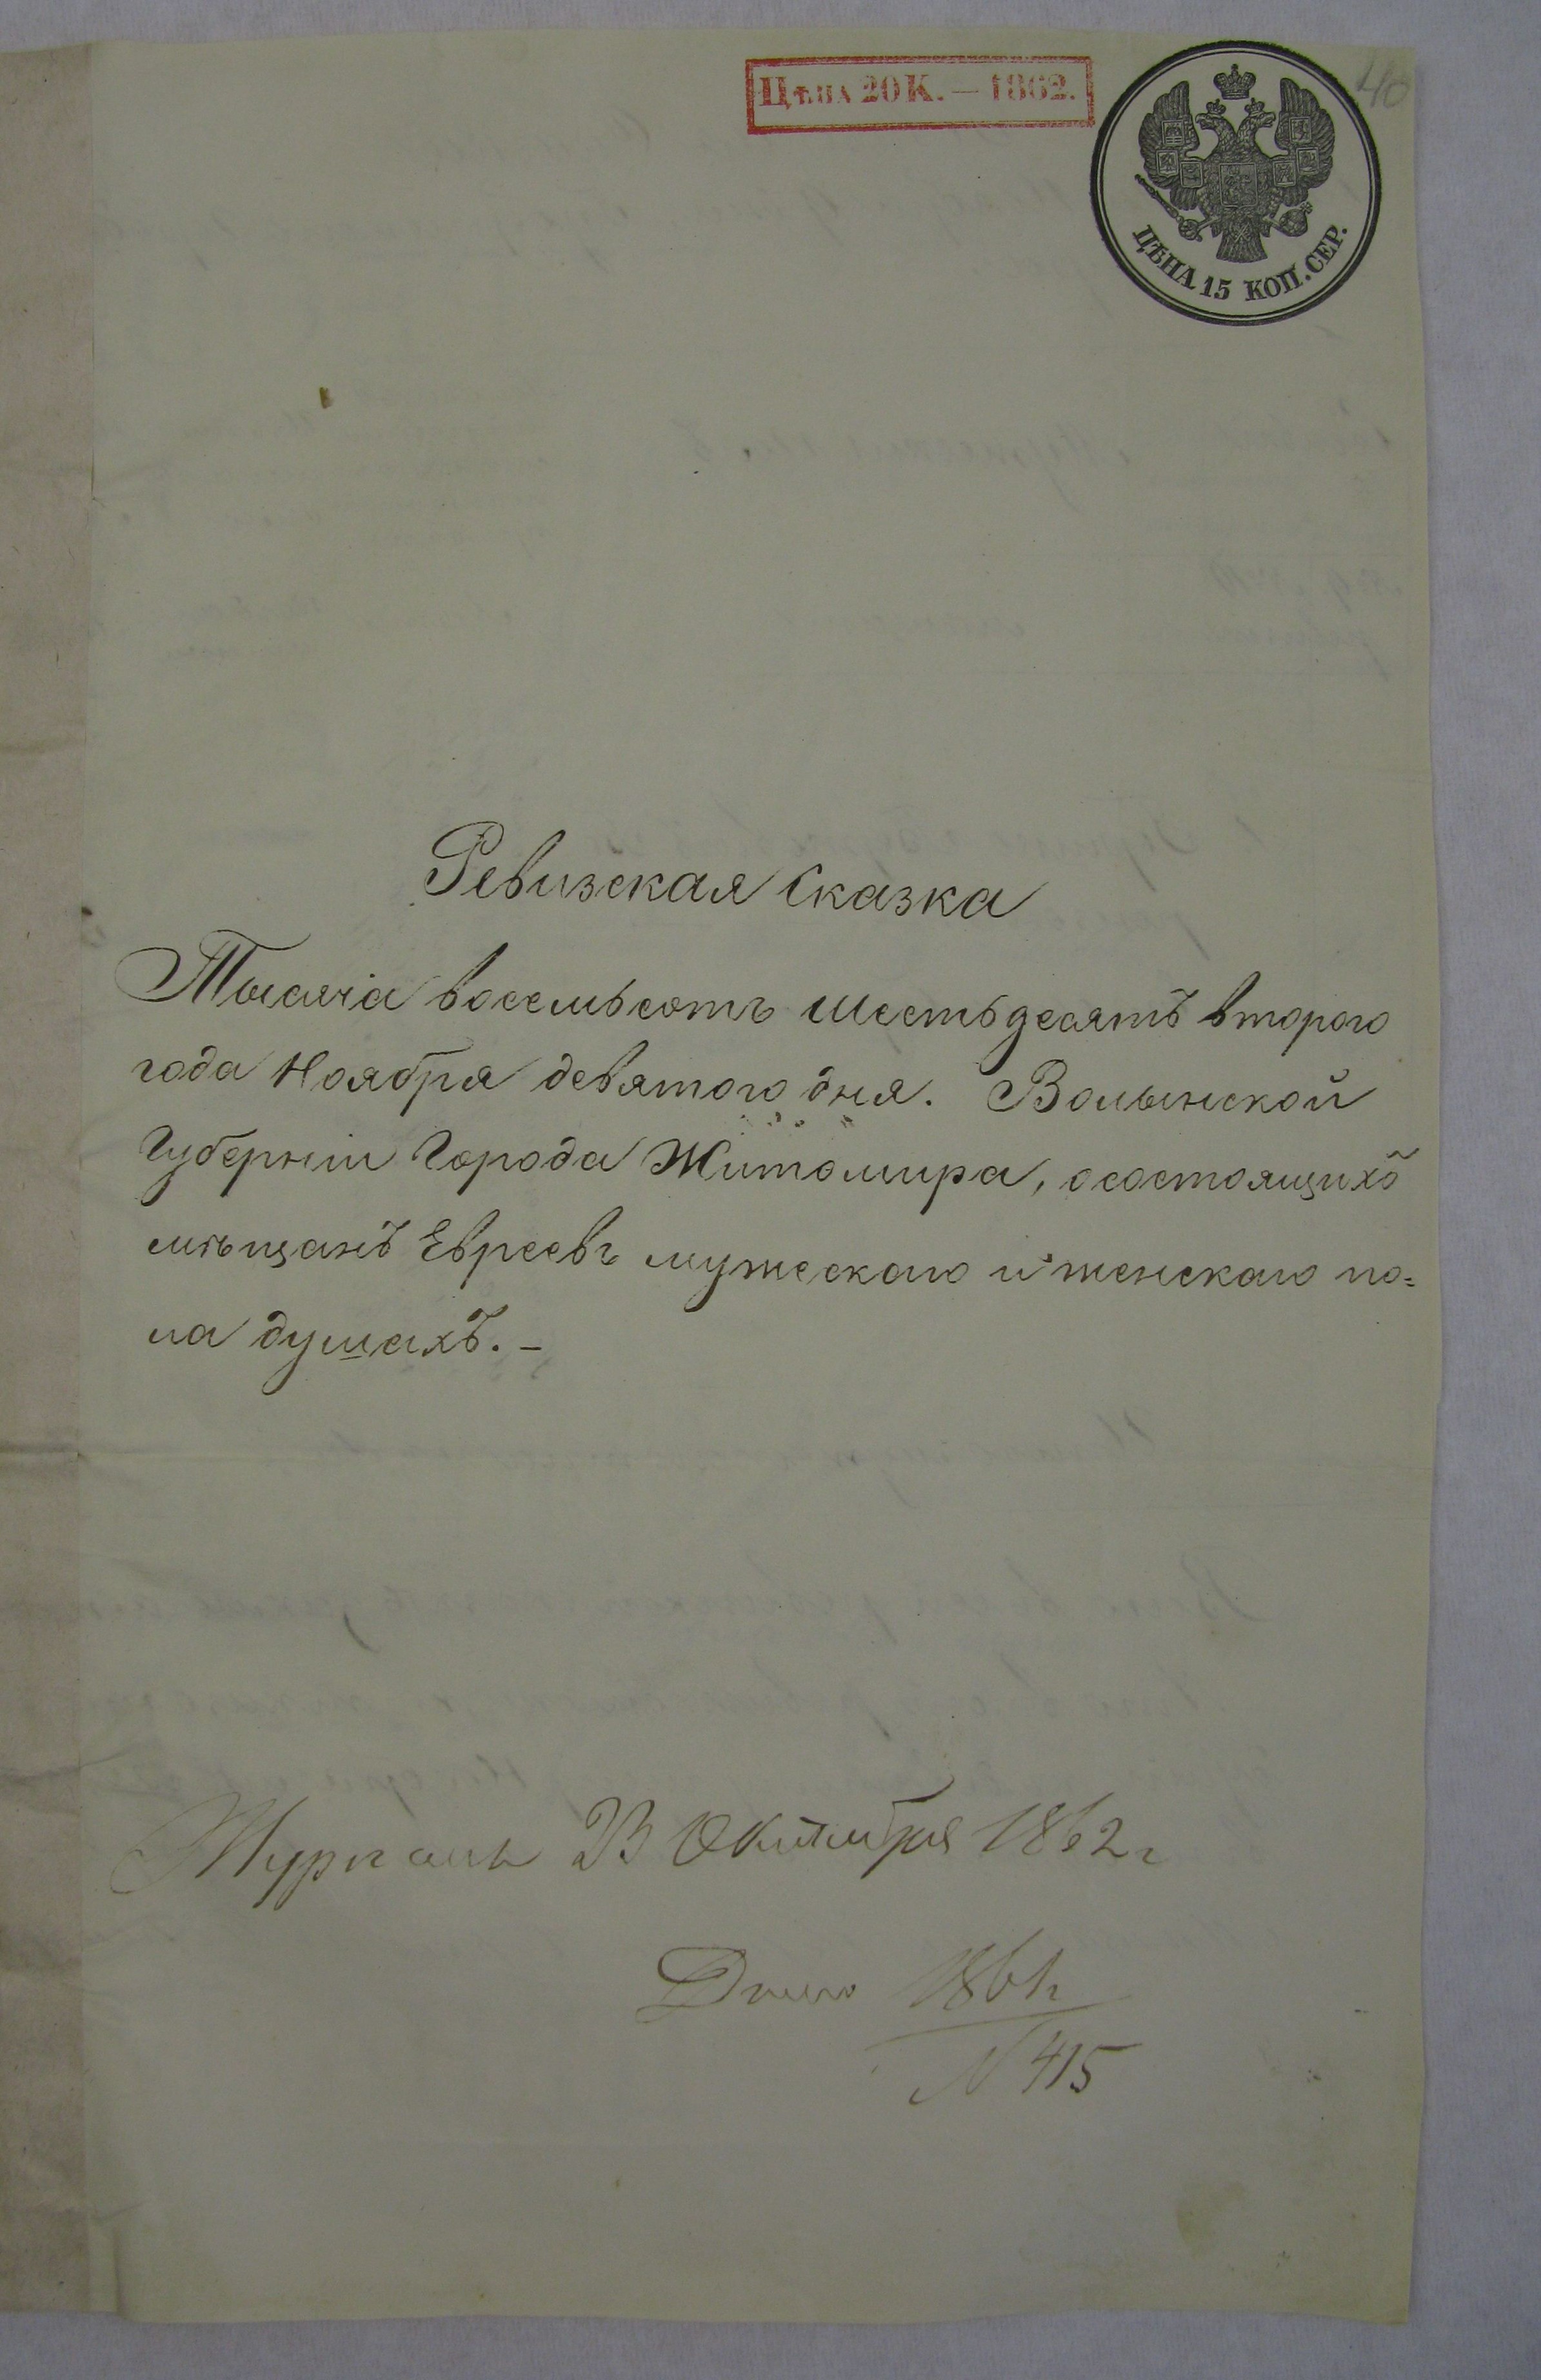 Цѣна 20 К. — 1862.
40
ЦѢНА 15 КОП. СЕР.
Ревизская Сказка
Тысяча восемьсотъ шестьдесятъ второго
года Ноября девятого дня. Волынской
Губерніи Города Житомира, о состоящихъ
мѣщанъ Евреевъ мужескаго и женскаго по=
ла душахъ. –
Журналъ 23 Октября 1862 г
Дѣло 1861 г
N 415